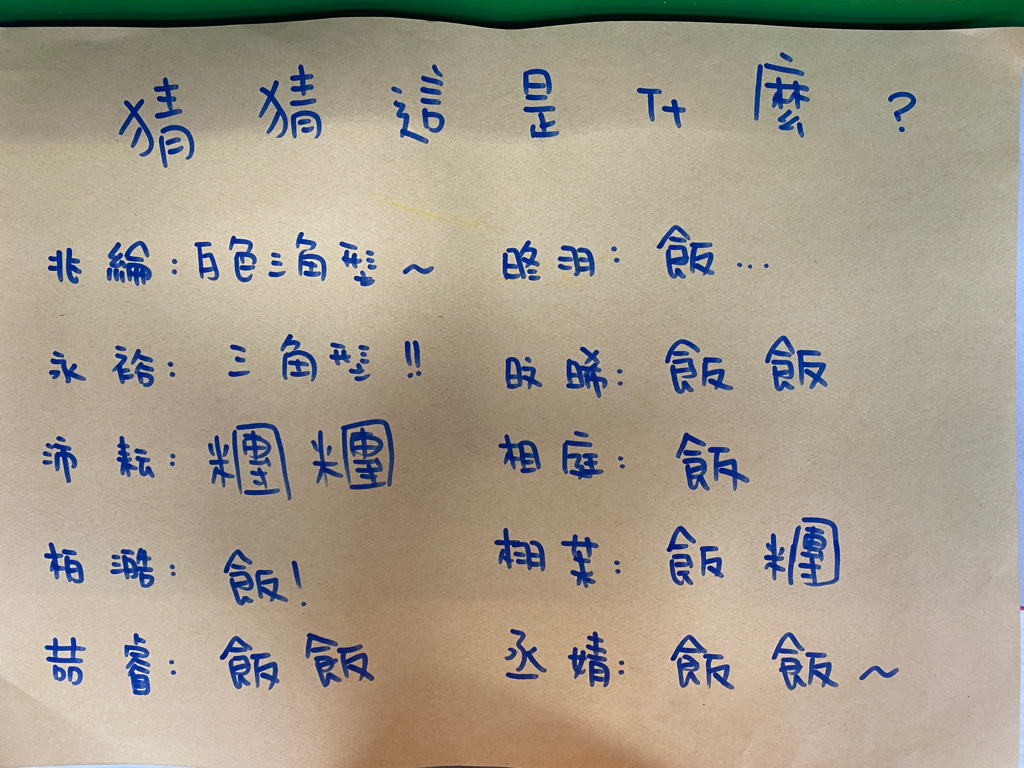 猜猜這是什麼?
兆綸:白色三角型~ 昸羽:飯...
永裕:三角型!! 旼晞:飯飯
沛耘:糰糰 相庭:飯
柏澔:飯! 栩:飯糰
喆睿:飯飯 丞婧:飯飯~